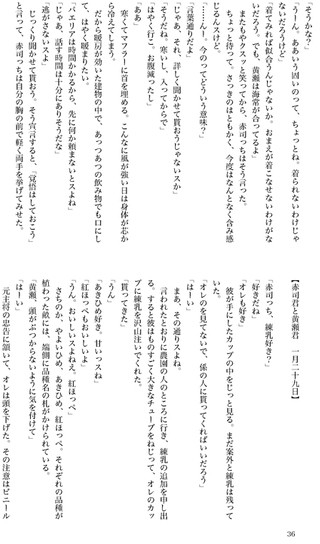 「そうかな？」
「うーん、ああいう固いのって、ちょっとね。着られないわけじゃ
ないだろうけど」
「着てみれば似合うんじゃないか。おまえが着こなせないわけがな
いだろう。でも、黄瀬は海常が合ってるよ」
またもやクスッと笑ってから、赤司っちはそう言った。
ちょっと待って。さっきのはともかく、今度はなんとなく含み感
じるんスけど。
「………んー。今のってどういう意味？」
「言葉通りだよ」
「じゃあ、それ、詳しく聞かせて貰おうじゃないスか」
「そうだね。寒いし、入ってからで」
「はやく行こ。お腹減ったし」
「ああ」
寒くてマフラーに首を埋める。こんなに風が強い日は身体が芯か
ら冷えてしまう。
だから暖房が効いた建物の中で、あっつあつの飲み物でも口にし
て、はやく暖まりたい。
「パエリアは時間かかるから、先に何か頼まないとスよね」
「じゃあ、話す時間は十分にありそうだな」
「逃がさないスよ」
じっくり聞かせて貰おう。そう宣言すると、「覚悟はしておこう」
と言って、赤司っちは自分の胸の前で軽く両手を挙げてみせた。
【赤司君と黄瀬君　一月二十九日】
「赤司っち、練乳好き？」
「好きだね」
「オレも好き」
彼が手にしたカップの中をじっと見る。まだ案外と練乳は残って
いた。
「オレのを見てないで、係の人に貰ってくればいいだろう」
まあ、その通りスよね。
言われたとおりに農園の人のところに行き、練乳の追加を申し出
る。すると彼はものすごく大きなチューブをねじって、オレのカッ
プに練乳を沢山注いでくれた。
「貰ってきた」
「うん」
「あきひめ好き、甘いっスね」
「紅ほっぺもおいしいよ」
「うん、おいしいスよねえ、紅ほっぺ」
さちのか、やよいひめ、あきひめ、紅ほっぺ。それぞれの品種が
植わった畝には、端側に品種名の札がかけられている。
「黄瀬、頭がぶつからないように気を付けて」
「はーい」
元主将の忠告に頷いて、オレは頭を下げた。その注意はビニール
36